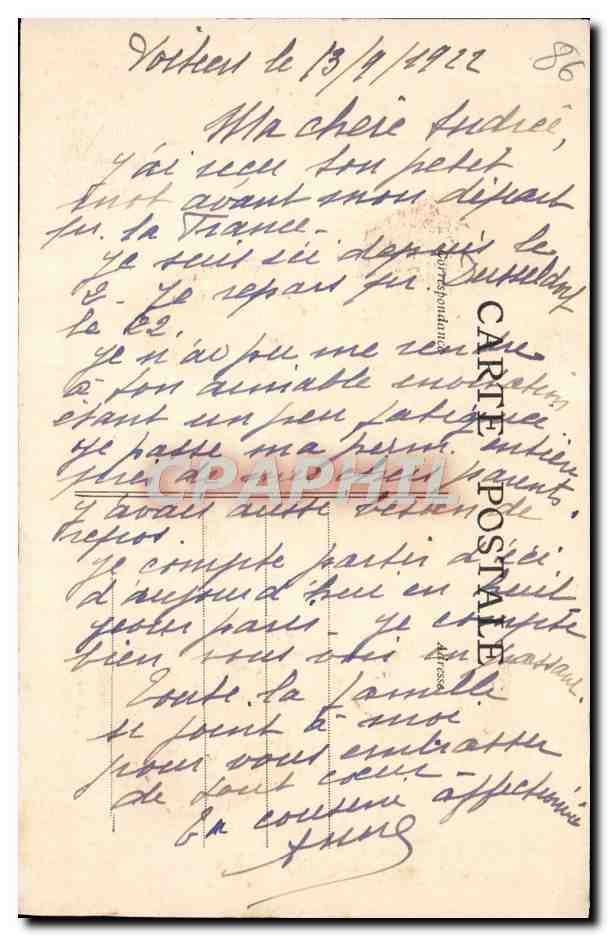 Poitiers le 13/9/1922
86
Ma chère Andrée,
J'ai reçu ton petit
mot avant mon départ
pr. la France.
Je suis ici depuis le
2. Je repars pr. Dusseldorf
le 22.
Je n'ai pu me rendre
à ton aimable invitation
étant un peu fatiguée
je passe ma perm. entière
près de mes parents.
J'avais aussi besoin de
repos.
Je compte partir d'ici
d'aujourd'hui en huit
pour paris. Je compte
bien vous voir en passant.
Toute la famille
se joint à moi
pour vous embrasser
de tout cœur
Ta cousine affectionnée
CARTE POSTALE
Correspondance
Adresse
CPAPHIL